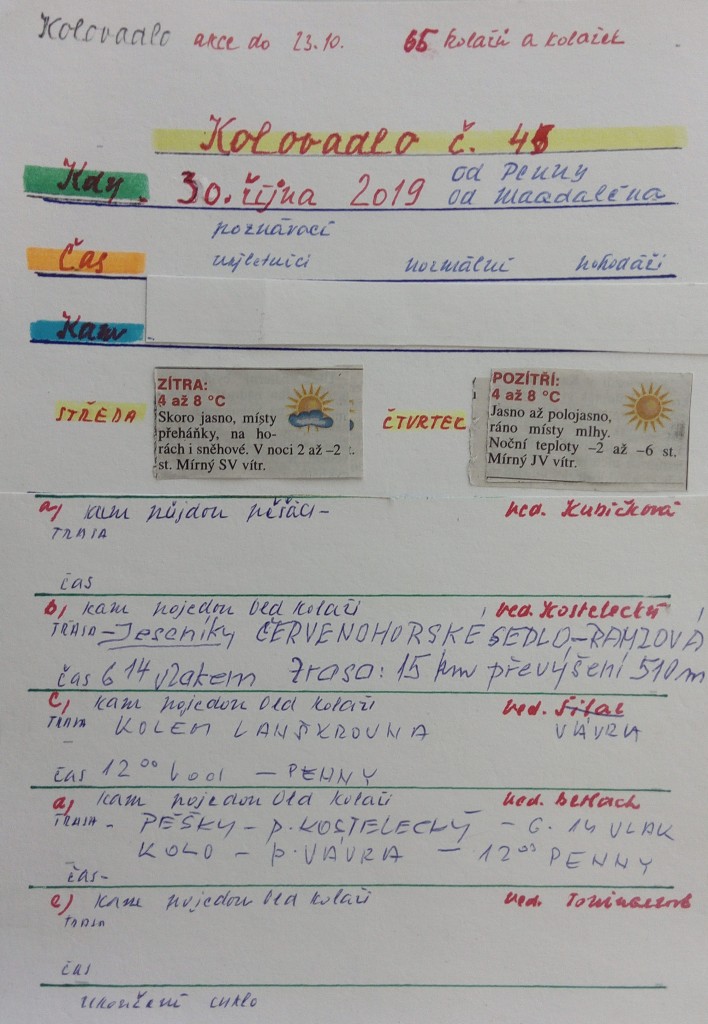 Kolovadlo akce do 23.10. 65 kolařů a kolařek
Kolovadlo č. 45
Kdy 30. října 2019 od Penny
od Magdaléna
poznávací
Čas normální pohodáři
Kam
STŘEDA
ZÍTRA:
4 až 8 °C
Skoro jasno, místy
přeháňky, na ho-
rách i sněhové. V noci 2 až –2
st. Mírný SV vítr.
ČTVRTEK
POZÍTŘÍ:
4 až 8 °C
Jasno až polojasno,
ráno místy mlhy.
Noční teploty –2 až –6 st.
Mírný JV vítr.
a) kam půjdou pěšáci- ved. Kubíčková
TRASA
čas
b) kam pojedou Old kolaři ved. Kostelecký
TRASA - Jeseníky ČERVENOHORSKÉ SEDLO-RAMZOVÁ
čas 6 14 vlakem Trasa: 15 km převýšení 510 m
c) kam pojedou Old kolaři ved. Šilar
TRASA KOLEM LANŠKROUNA VÁVRA
čas 12 00 hod - PENNY
d) kam pojedou Old kolaři ved.
TRASA - PĚŠKY - p. KOSTELECKÝ - 6. 14 VLAK
KOLO - p. VÁVRA - 12 00 PENNY
čas-
e) kam pojedou Old kolaři ved.
TRASA
čas
ukončení cyklo